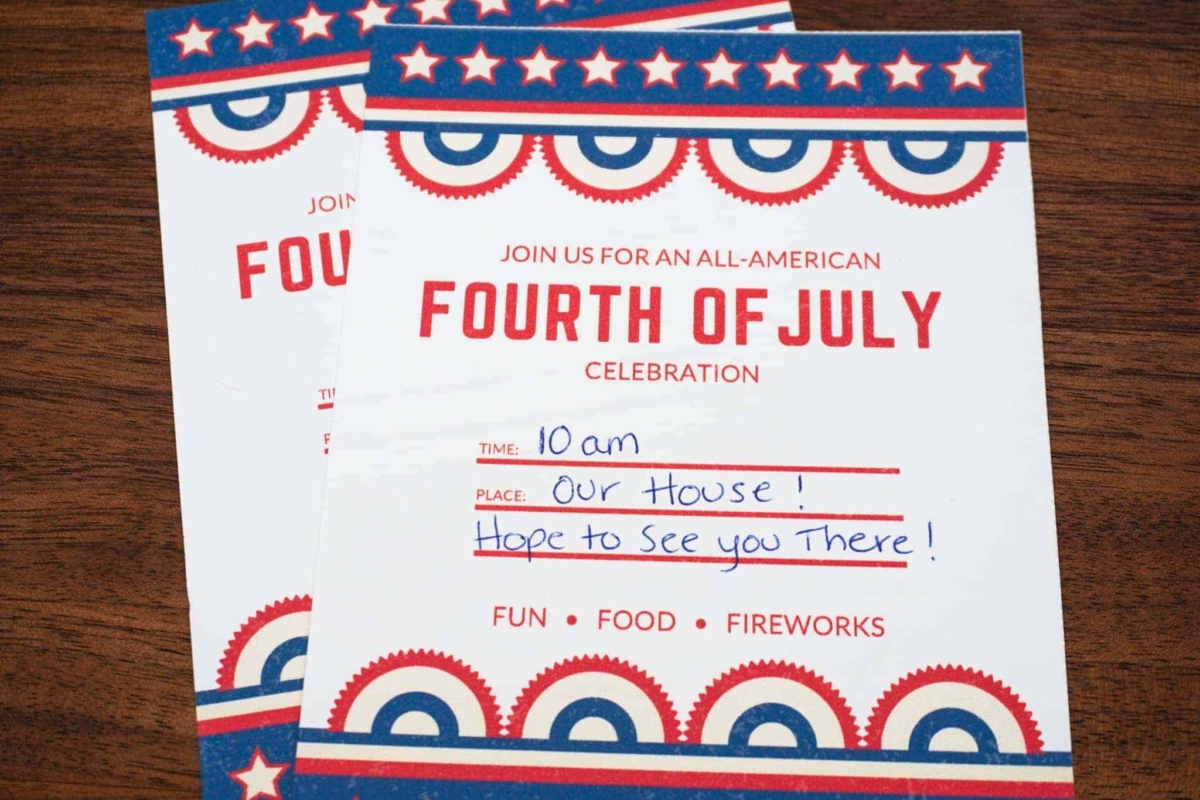 JOIN
FOU
TI
JOIN US FOR AN ALL-AMERICAN
FOURTH OF JULY
CELEBRATION
TIME: 10 am
PLACE: Our House!
Hope to See you There!
FUN • FOOD • FIREWORKS